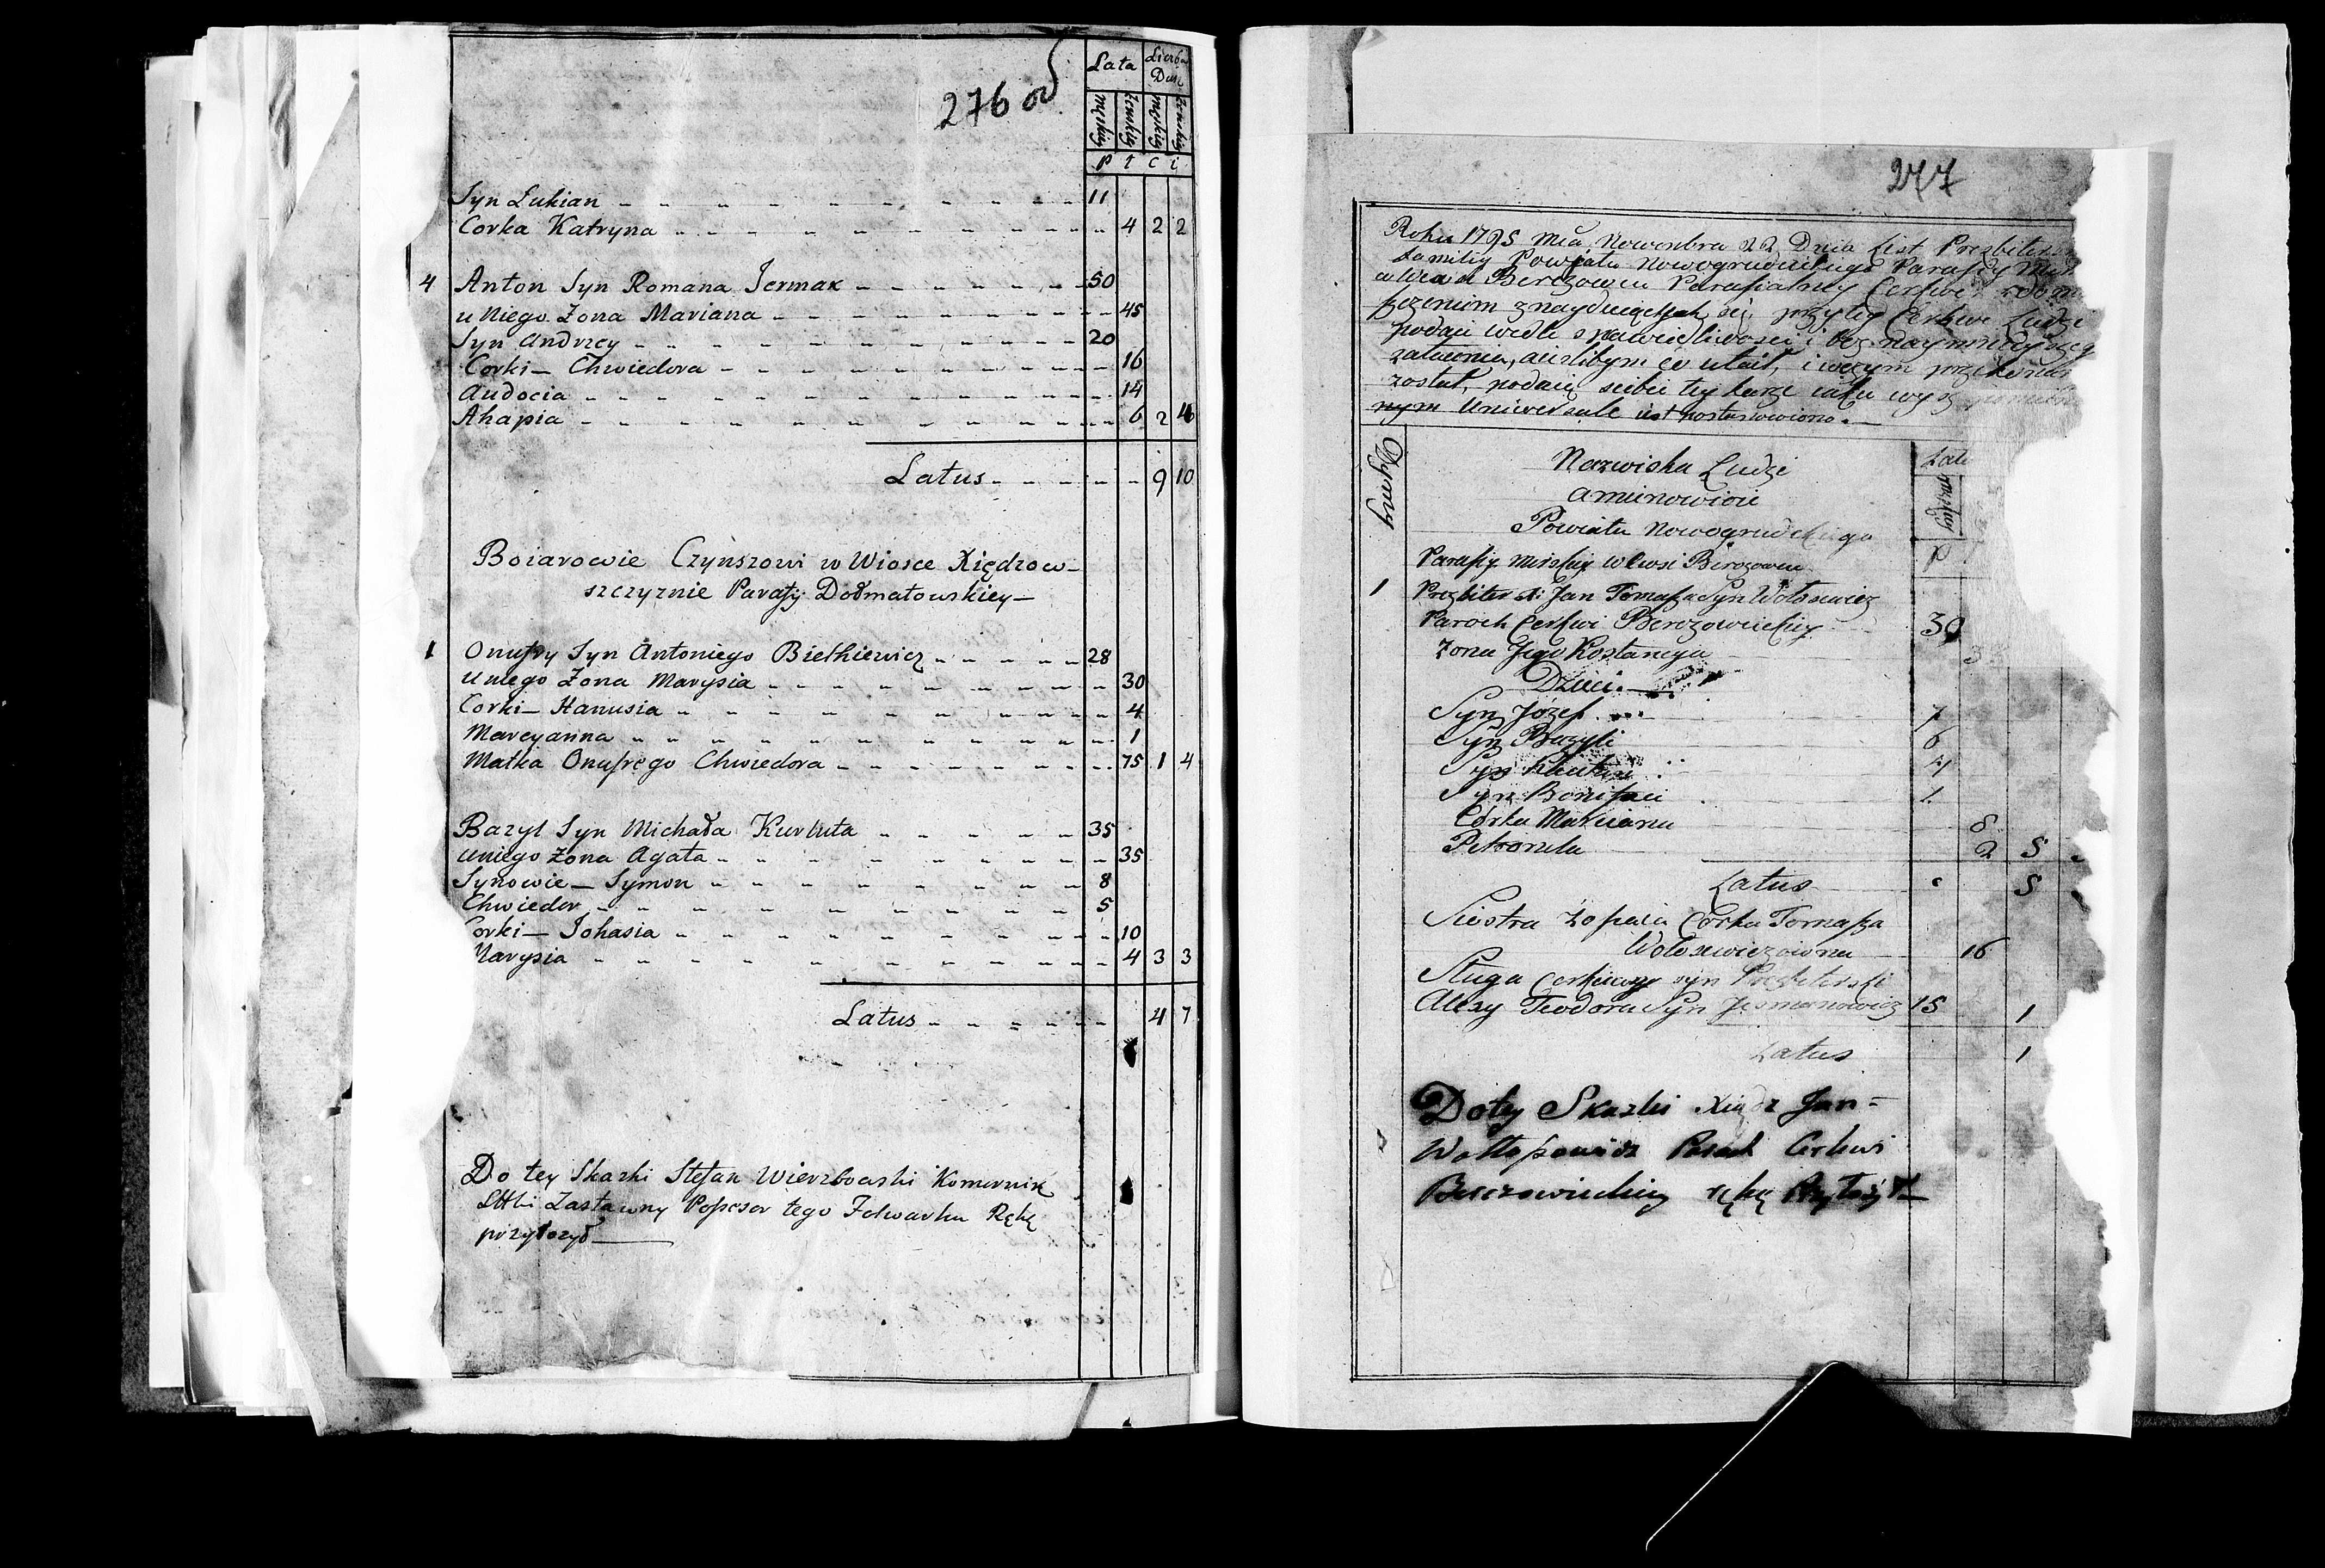 276 od
Lata Liczba Dusz
męskiey żenskiey męskiey żenskiey
P ł c i
Syn Lukian 11
Corka Katryna 4 2 2
4 Anton Syn Romana Jermak 50
u Niego Zona Mariana 45
Syn Andrzey 20
Corki — Chwiedora 16
Audocia 14
Ahapia 6 2 4
Latus 9 10
Boiarowie Czynszowi w Wiosce Xiędzow-
szczyznie Parafij Dołmatowskiey —
1 Onufry Syn Antoniego Bielkiewicz 28
u niego Zona Marysia 30
Corki — Hanusia 4
Marcyanna 1
Matka Onufrego Chwiedora 75 1 4
Bazyl Syn Michała Kurłuta 35
u niego Zona Agata 35
Synowie — Symon 8
Chwiedor 5
Corki — Johasia 10
Marysia 4 3 3
Latus 4 7
Do tey Skazki Stefan Wierzbowski Komornik
Zastawny Possesor tego Folwarku Rękę
przyłożył
277
Roku 1795 Mca Nowembra 22 Dnia List
Familiy Powiatu Nowogrudzkiego Parafiy
Berezowcu Parafialney Cerkwi
znayduiących się przy tey Cerkwi Ludzi
podaie wedle sprawiedliwosci i bez naymnieyszeg
zataienia, a ieslibym co utaił, i w czym przekonan
został, podaię siebie tey karze iaka wysz
nym Uniwersale iest postanowiono. —
Dymy
Nazwiska Ludzi
a mianowicie
Powiatu Nowogrudzkiego
Lata
męskiey
P
Parafiy mirskiey w Wsi Berozowcu
1 Prezbiter X: Jan Tomasza Syn Wołosewicz
Paroch Cerkwi Berezowieckiey 39
Zona Jego Kostancya
Dzieci. —
Syn Jozef 7
Syn Bazyli 6
Syn 4
Syn Bonifaci 1
Corka Marcianna 8
Petronela 2 5
Latus 5
Siostra Zofia Corka Tomasza
Wołosewiczowna 16
Sługa Cerkiewny syn Prezbiterski
Alexy Teodora Syn 15 1
Latus 1
Do tey Skazki Xiądz Jan
Wołłosowicz Paroch Cerkwi
Berezowieckiey rękę Przyłożył